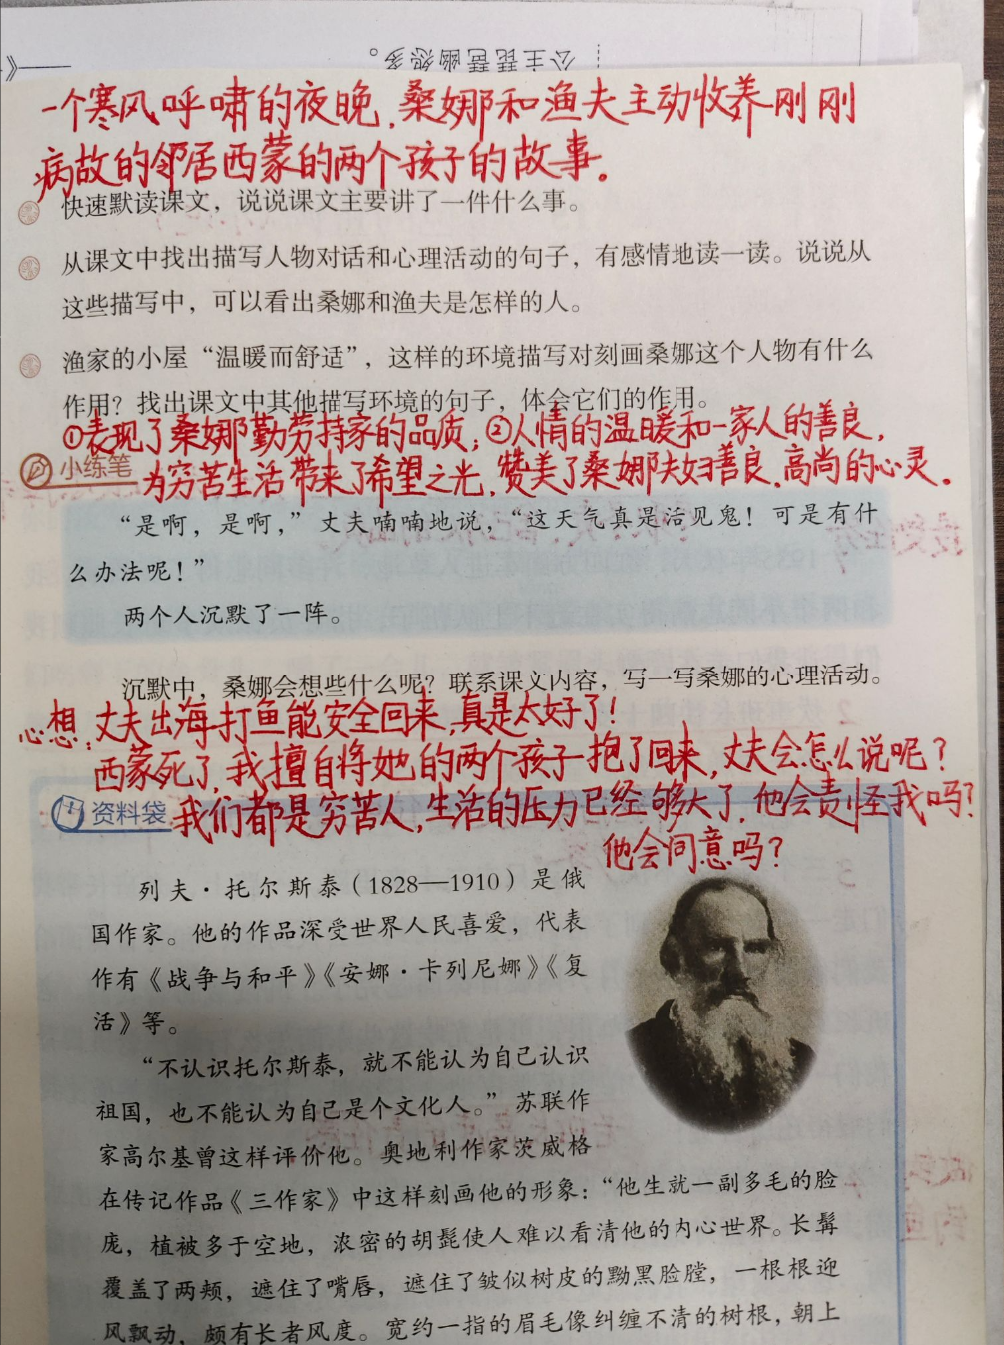 公主琵琶幽怨多。
一个寒风呼啸的夜晚,桑娜和渔夫主动收养刚刚
病故的邻居西蒙的两个孩子的故事。
快速默读课文，说说课文主要讲了一件什么事。
从课文中找出描写人物对话和心理活动的句子，有感情地读一读。说说从
这些描写中，可以看出桑娜和渔夫是怎样的人。
渔家的小屋“温暖而舒适”，这样的环境描写对刻画桑娜这个人物有什么
作用？找出课文中其他描写环境的句子，体会它们的作用。
①表现了桑娜勤劳持家的品质；②人情的温暖和一家人的善良，
小练笔
为穷苦生活带来了希望之光，赞美了桑娜夫妇善良、高尚的心灵。
“是啊，是啊，”丈夫喃喃地说，“这天气真是活见鬼！可是有什
么办法呢！”
两个人沉默了一阵。
沉默中，桑娜会想些什么呢？联系课文内容，写一写桑娜的心理活动。
心想：丈夫出海打鱼能安全回来，真是太好了！
西蒙死了，我擅自将她的两个孩子抱了回来，丈夫会怎么说呢？
资料袋
我们都是穷苦人，生活的压力已经够大了，他会责怪我吗？
他会同意吗？
列夫·托尔斯泰（1828—1910）是俄
国作家。他的作品深受世界人民喜爱，代表
作有《战争与和平》《安娜·卡列尼娜》《复
活》等。
“不认识托尔斯泰，就不能认为自己认识
祖国，也不能认为自己是个文化人。”苏联作
家高尔基曾这样评价他。奥地利作家茨威格
在传记作品《三作家》中这样刻画他的形象：“他生就一副多毛的脸
庞，植被多于空地，浓密的胡髭使人难以看清他的内心世界。长髯
覆盖了两颊，遮住了嘴唇，遮住了皱似树皮的黝黑脸膛，一根根迎
风飘动，颇有长者风度。宽约一指的眉毛像纠缠不清的树根，朝上